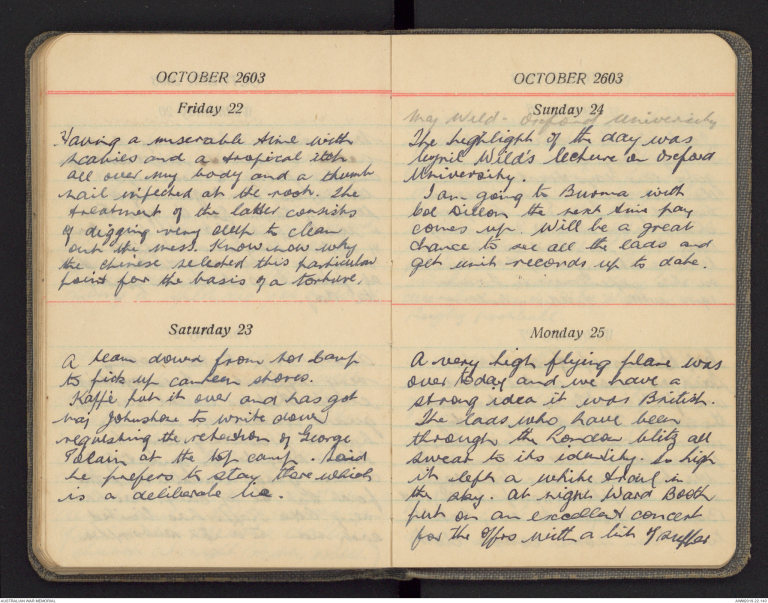 OCTOBER 2603
Friday 22
Having a miserable time with
scabies and a tropical itch
all over my body and a thumb
nail infected at the root. The
treatment of the latter consists
of digging very deep to clean
out the mess. Know now why
the chinese selected this particular
point for the basis of a torture.
Saturday 23
A team down from Camp
to pick up canteen stores.
put it over and has got
Maj Johnstone to write down
requesting the retention of George
at the top camp. Said
he prefers to stay there which
is a deliberate lie.
OCTOBER 2603
Sunday 24
Maj Wild - Oxford University
The highlight of the day was
Wild's lecture on Oxford
University.
I am going to Burma with
Col Dillon the next time pay
comes up. Will be a great
chance to see all the lads and
get unit records up to date.
Monday 25
A very high flying plane was
over today and we have a
strong idea it was British.
The lads who have been
through the London blitz all
swear to its identity. So high
it left a white trail in
the sky. At night Ward Booth
put on an excellent concert
for the offrs with a bit of supper
AUSTRALIAN WAR MEMORIAL